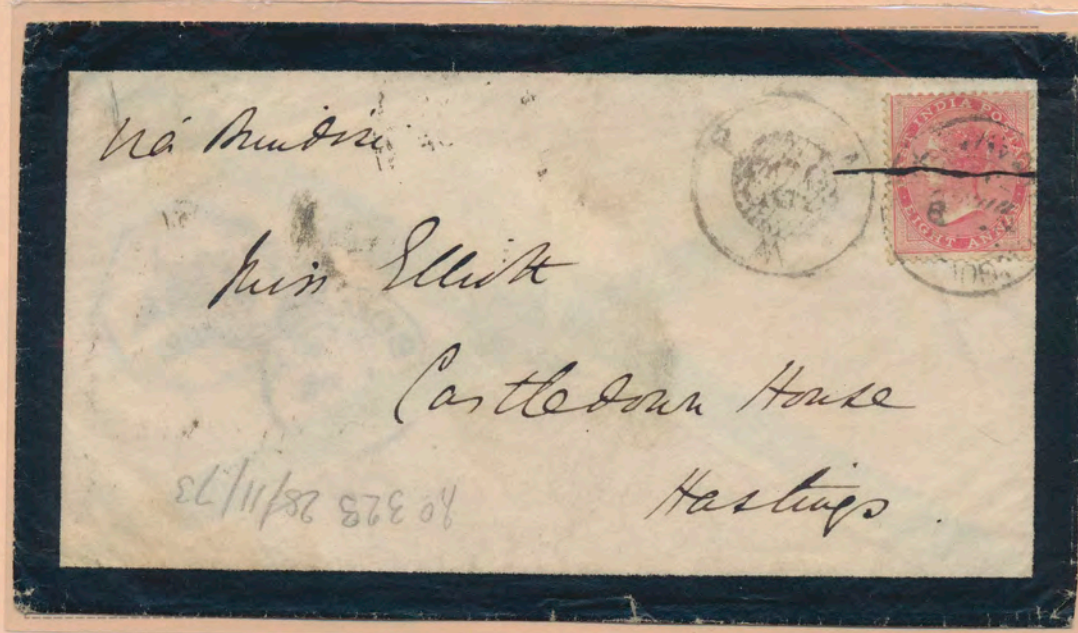 Viá Brindisi
INDIA POSTAGE
EIGHT ANNAS
Miss Elliott
Castledown House
Hastings.
No 323 28/11/73